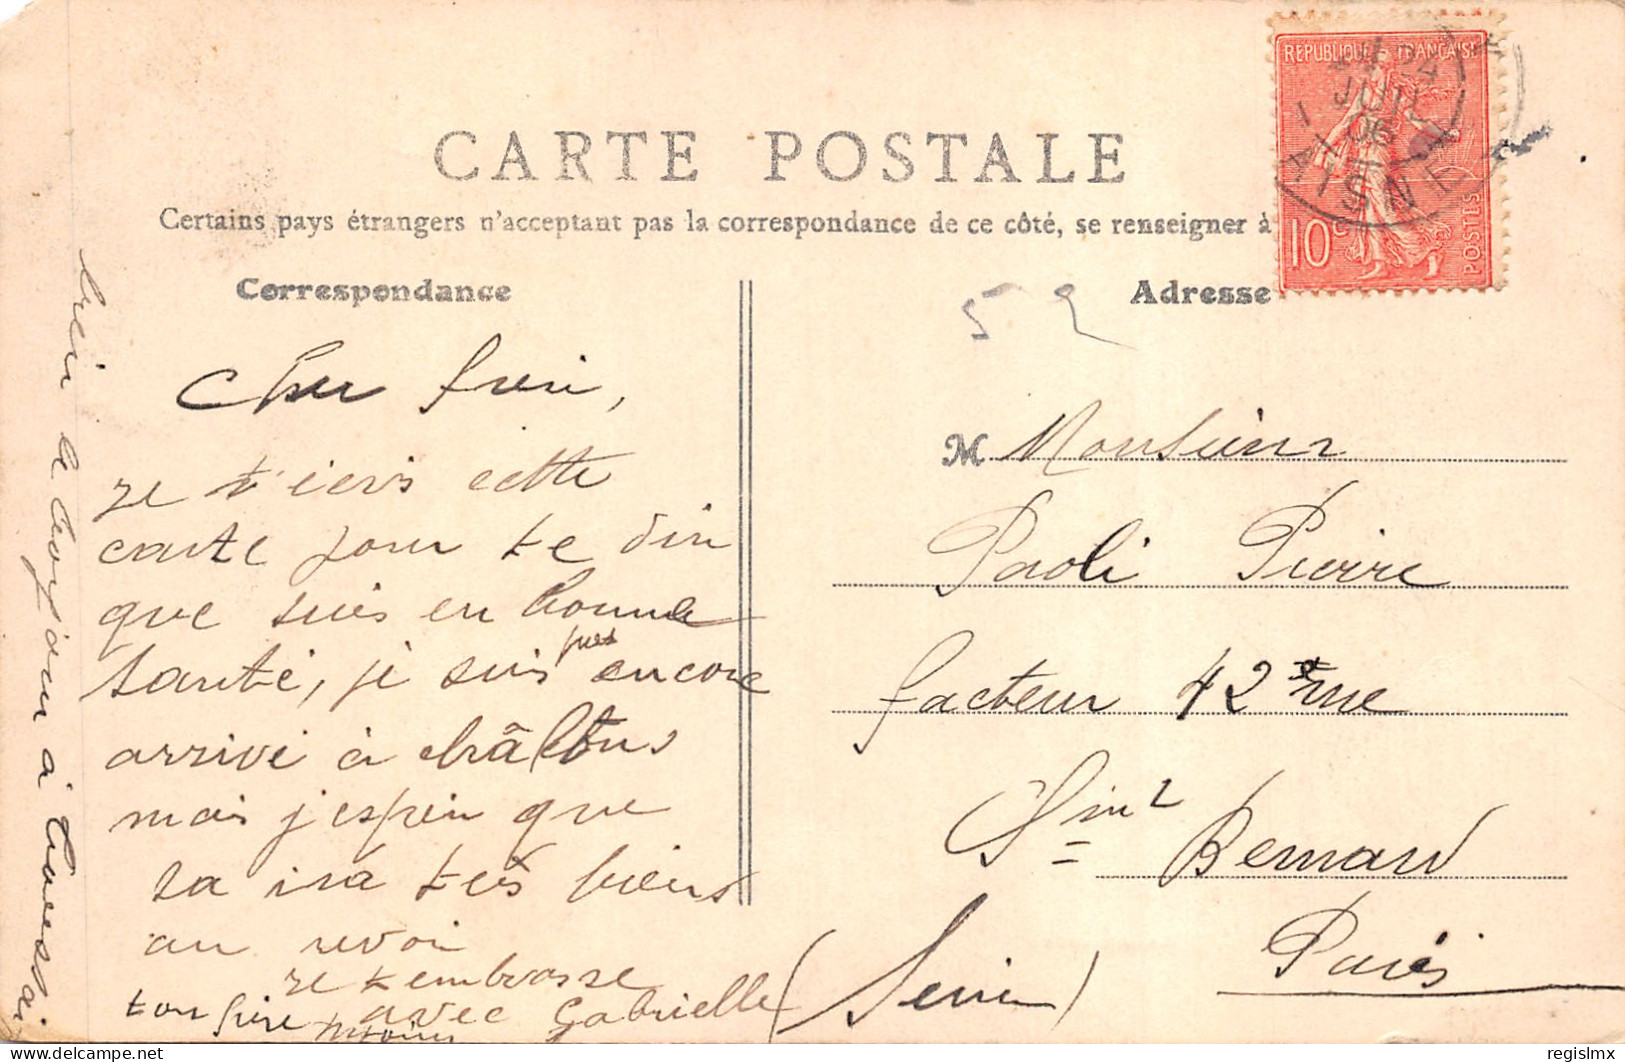 CARTE POSTALE
Certains pays étrangers n'acceptent pas la correspondance de ce côté, se renseigner à
REPUBLIQUE FRANÇAISE
10c
POSTES
24
JUIL
06
AISNE
Correspondance
Adresse
59
Cher frere,
je t'ecris cette
carte pour te dire
que suis en bonne
santé, je suis pas encore
arrivé à châlons
mais j'espere que
sa ira tres biens
au revoir
je t'embrasse
ton frere avec Gabrielle
bien le bonjour à
M Monsieur
Paoli Pierre
facteur 42 rue
Bernard
Paris
(Seine)
delcampe.net
regislmx